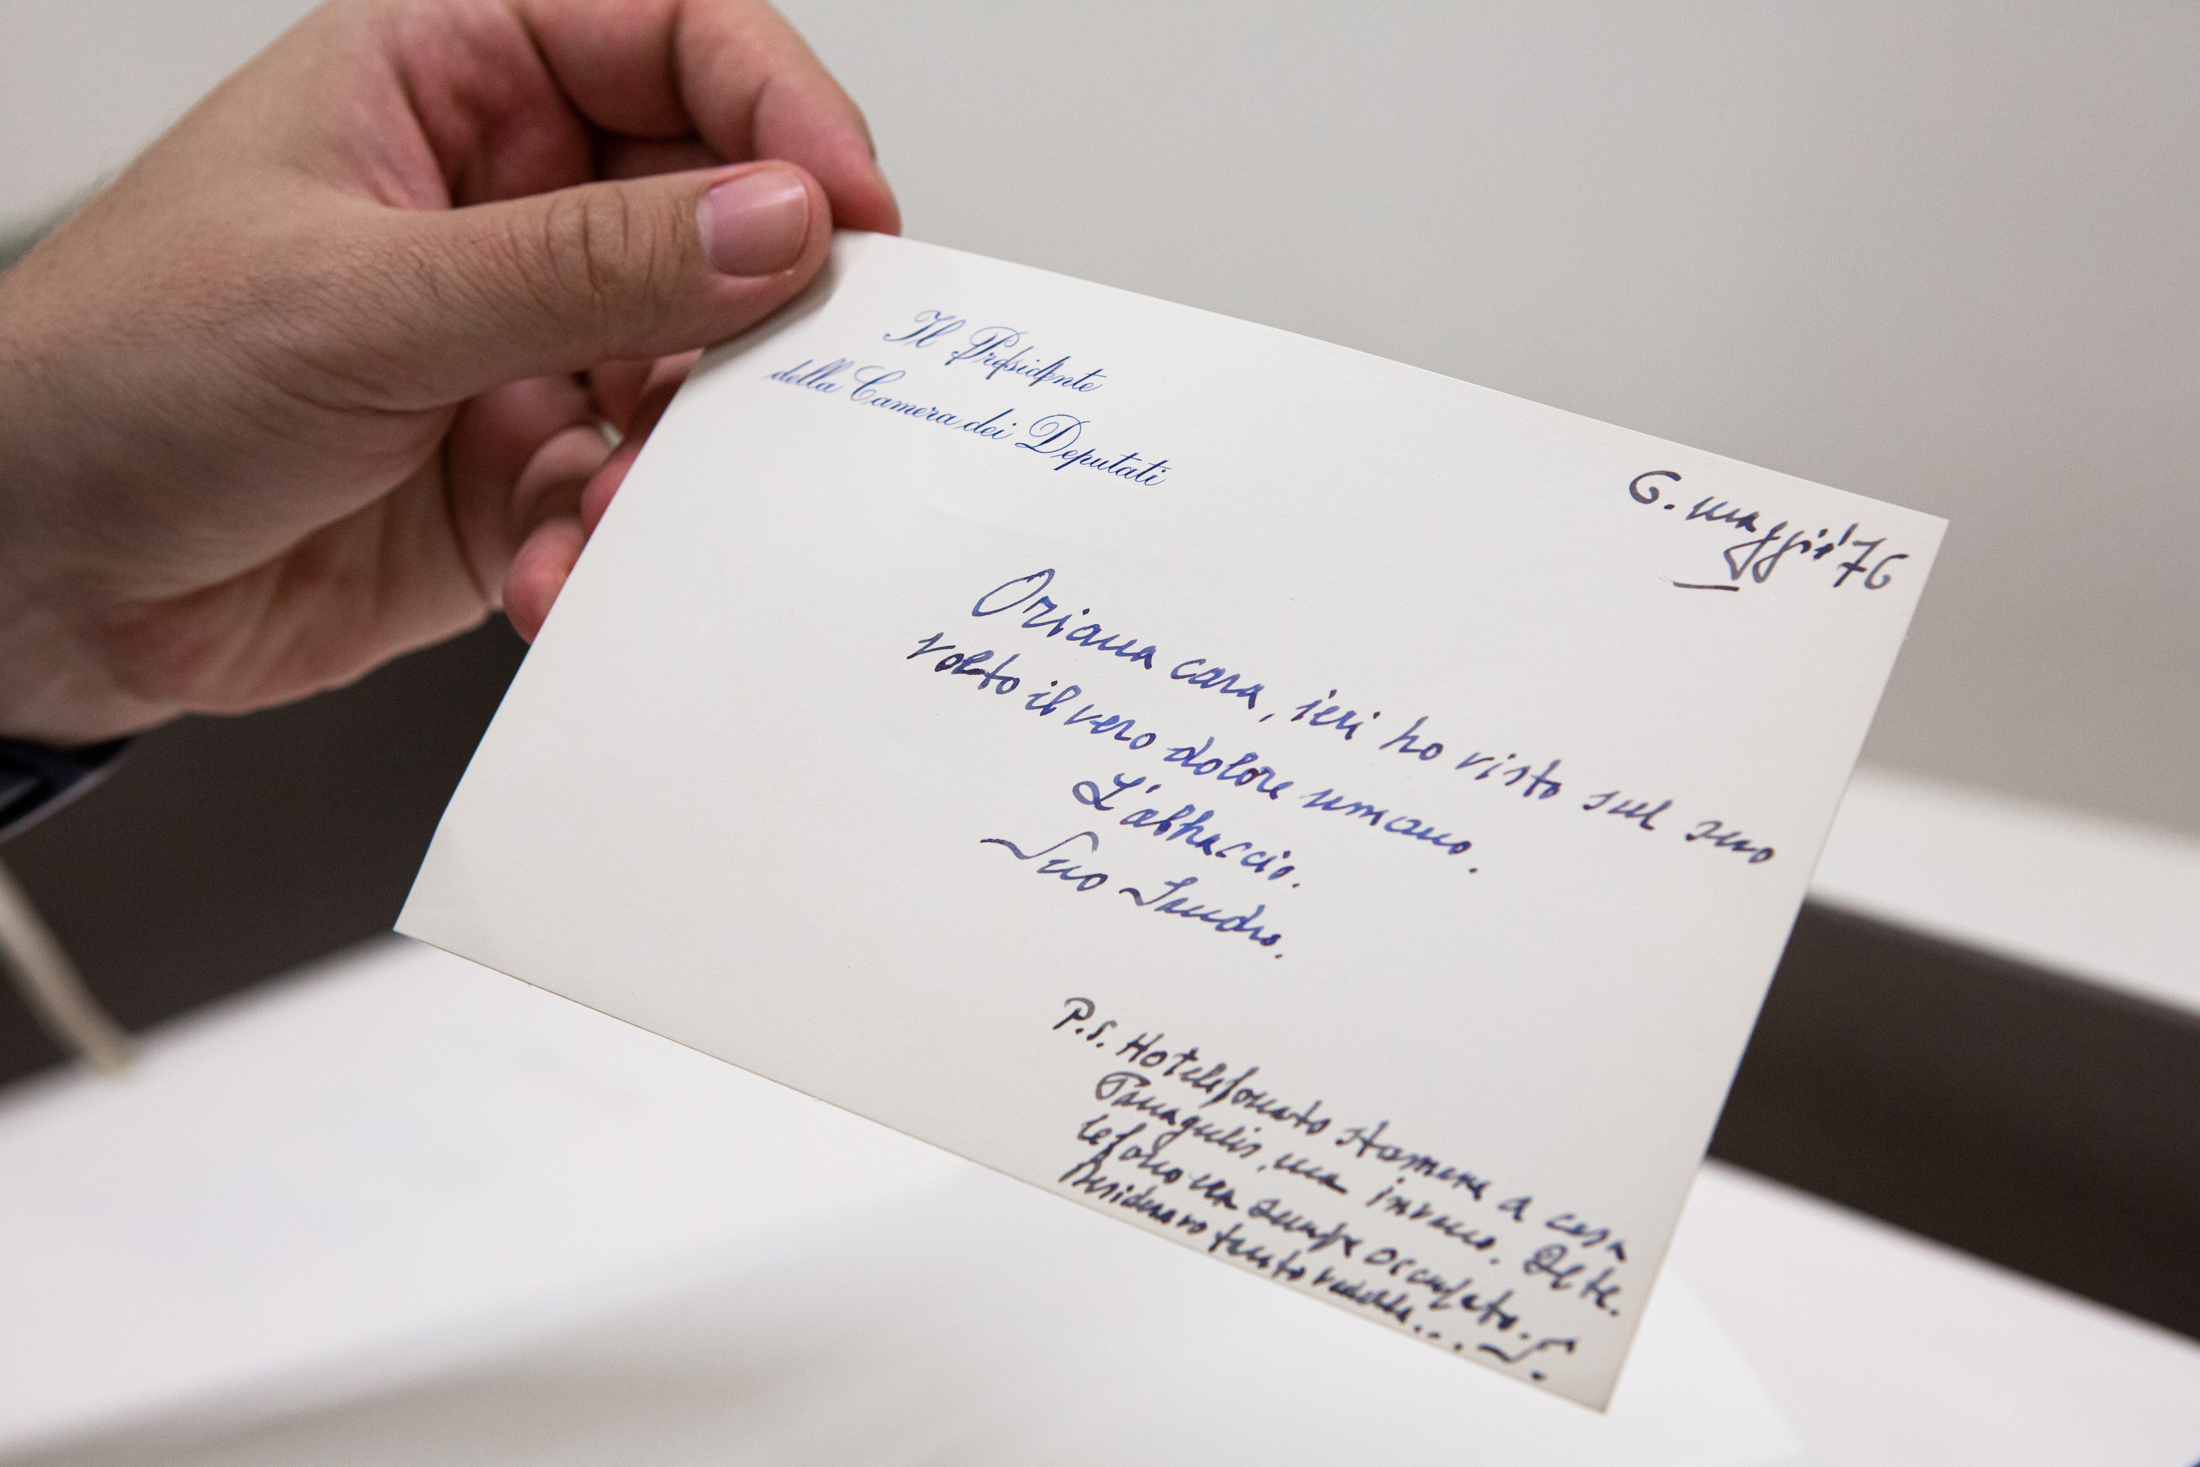 Il Presidente
della Camera dei Deputati
6. maggio '76
Oriana cara, ieri ho visto sul suo
volto il vero dolore umano.
L'abbraccio.
Suo Sandro.
P.S. Ho telefonato stamane a casa
Panagulis, ma invano. Il te.
lefono era sempre occupato.
Desideravo tanto vederla.... S.